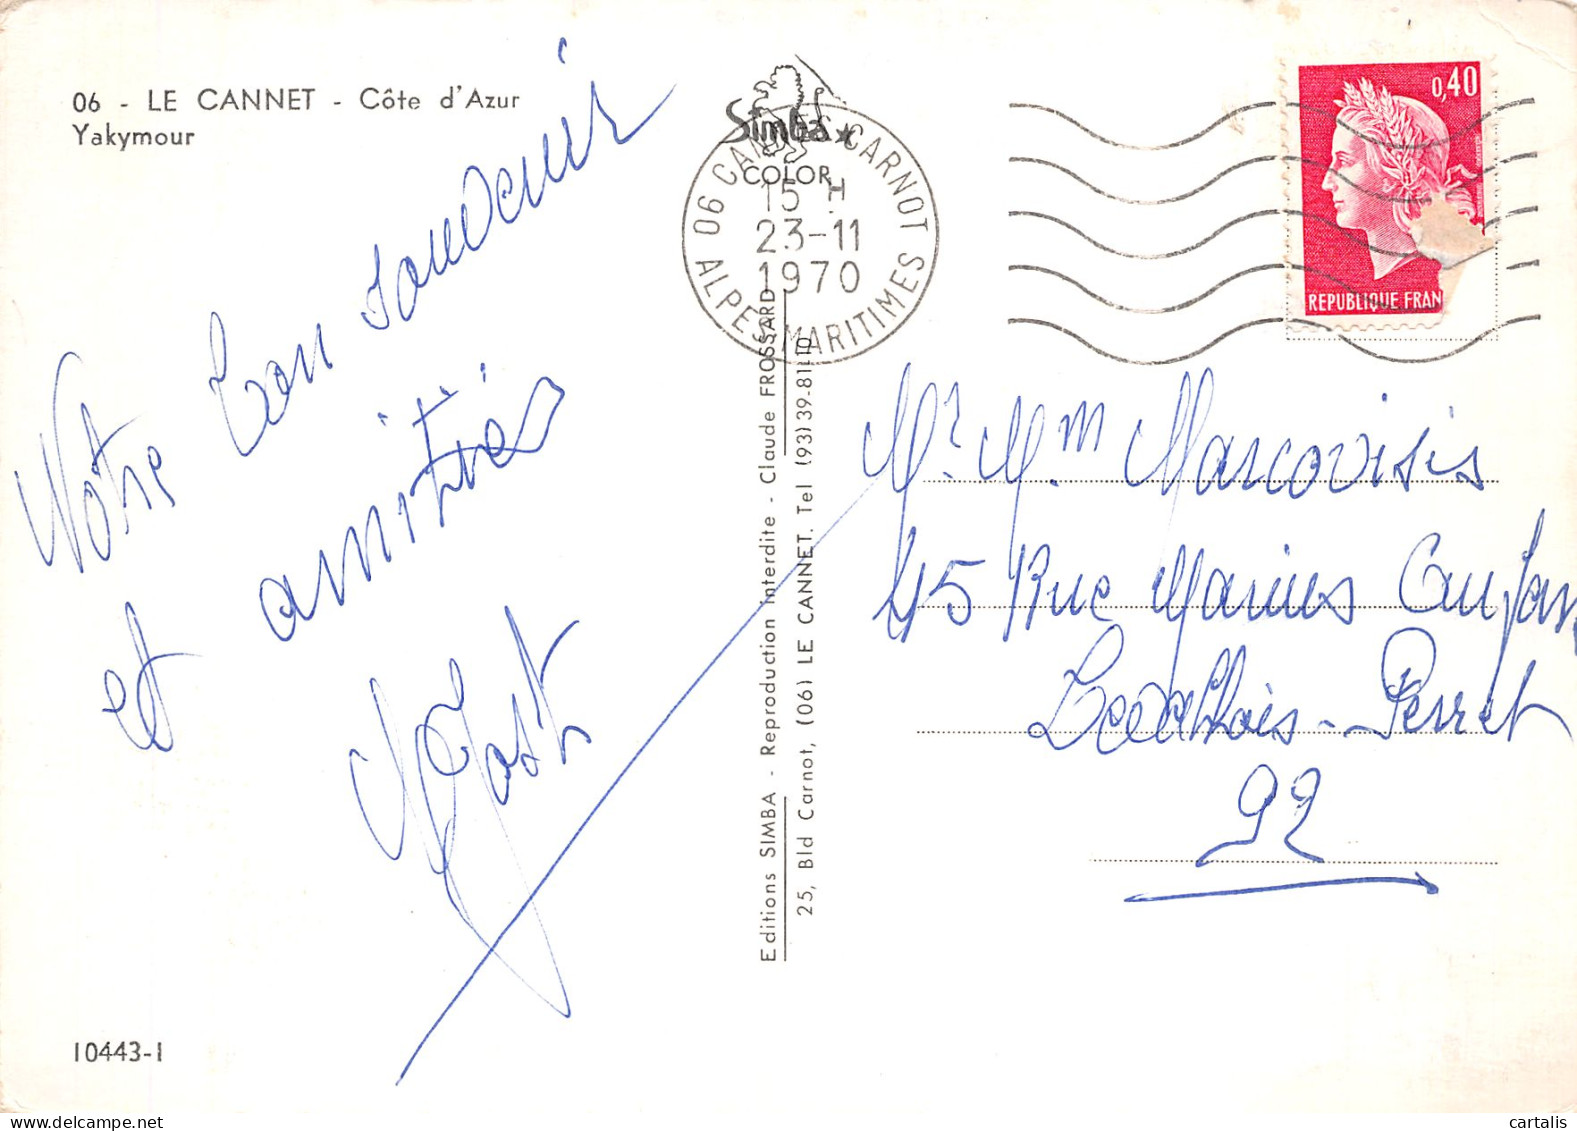 06 - LE CANNET - Côte d'Azur
Yakymour
Simba
COLOR
06 CANNES CARNOT
15 H
23-11
1970
ALPES-MARITIMES
0,40
REPUBLIQUE FRAN
Notre bon souvenir
et amitiés
Jost
Mr. Mm Marcovisis
45 Rue Marius Aufan
Levallois-Perret
92
Editions SIMBA - Reproduction interdite - Claude FROSSARD
25, Bld Carnot, (06) LE CANNET. Tel (93) 39-81-10
10443-1
cartalis
www.delcampe.net